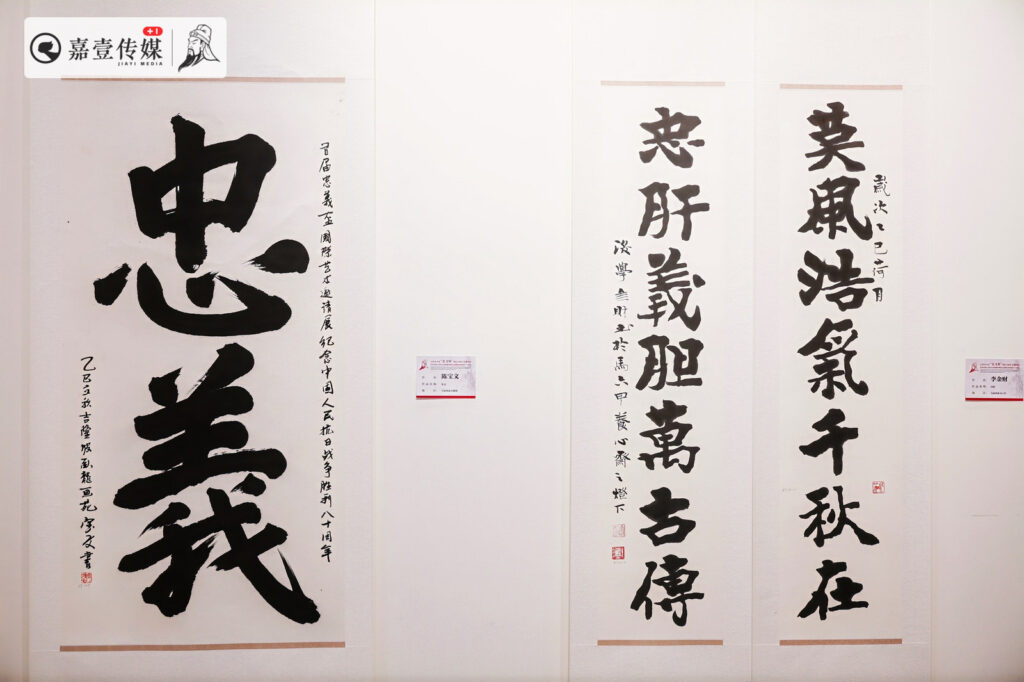 嘉壹传媒
+1
JIAYI MEDIA
忠義
首届忠義盃國際艺术邀请展纪念中国人民抗日战争胜利八十周年
乙巳立秋吉隆坡画龍画苑宝文書
陈宝文
莫風浩氣千秋在
歲次乙巳荷月
忠肝義胆萬古傳
後學金財书於馬六甲養心齋之燈下
李金财